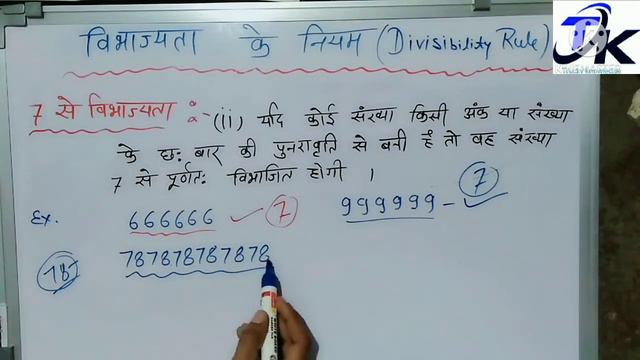 विभाज्यता के नियम (Divisibility Rule)
JK
7 से विभाज्यता :- (ii) यदि कोई संख्या किसी अंक या संख्या
के छः बार की पुनरावृति से बनी है तो वह संख्या
7 से पूर्णतः विभाजित होगी ।
Ex. 666666 ✓ 7 999999 - ✓ 7
787878787878